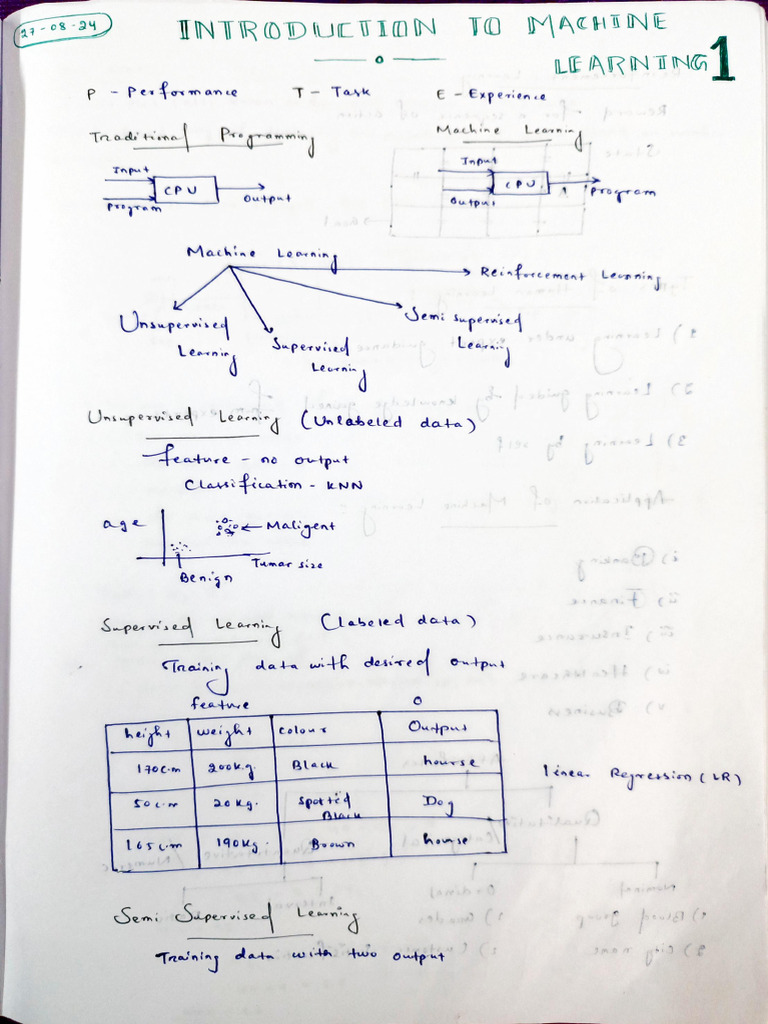 27-08-24
INTRODUCTION TO MACHINE
LEARNING 1
P - Performance T - Task E - Experience
Traditional Programming Machine Learning
Input
CPU
Program
Output
Input
CPU
Output
Program
Machine Learning
Reinforcement Learning
Semi supervised
Learning
Unsupervised
Learning
Supervised
Learning
Unsupervised Learning (Unlabeled data)
feature - no output
Classification - KNN
age
Maligent
Tumar size
Benign
Supervised Learning (Labeled data)
Training data with desired output
feature O
height weight colour Output
170cm 200kg. Black hourse
50cm 20kg. Spotted Black Dog
165cm 190kg. Brown hourse
linear Regression (LR)
Semi Supervised Learning
Training data with two output